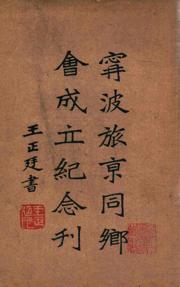 甯波旅京同鄉
會成立紀念刊
王正廷書